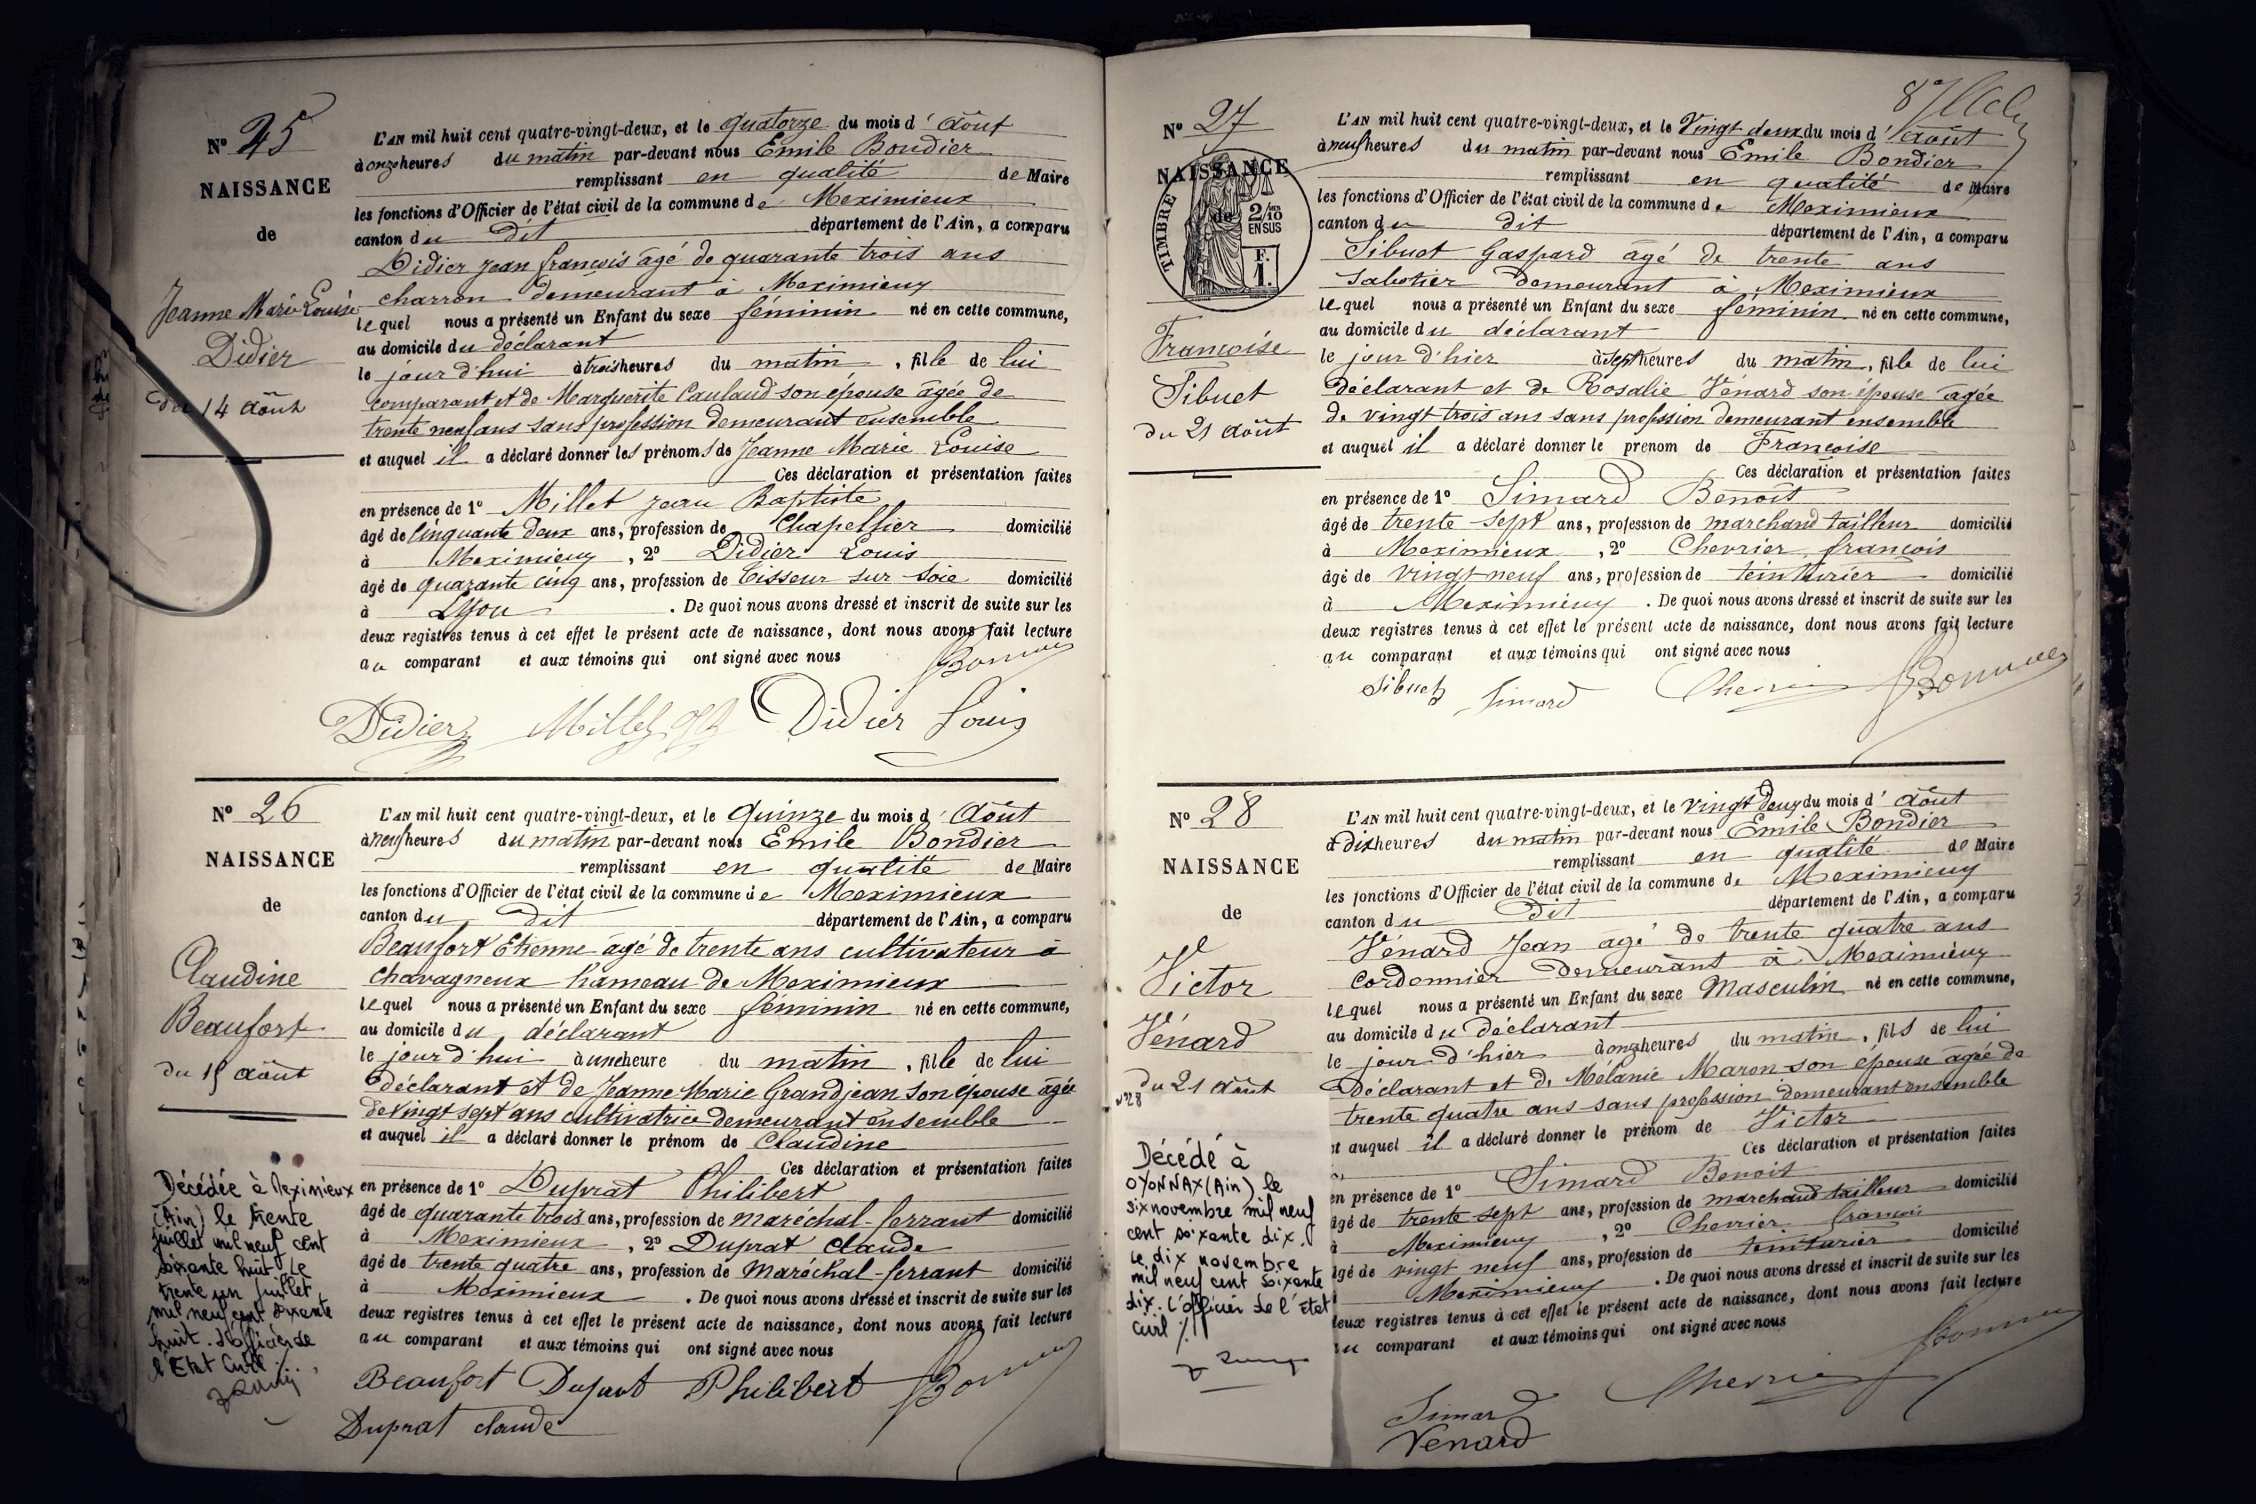 N° 25
NAISSANCE
de
Jeanne Marie Louise
Didier
du 14 août
L'AN mil huit cent quatre-vingt-deux, et le quatorze du mois d' août
à onze heures du matin par-devant nous Emile Bondier
remplissant en qualité de Maire
les fonctions d'Officier de l'état civil de la commune de Meximieux
canton du dit département de l'Ain, a comparu
Didier Jean françois âgé de quarante trois ans
charron demeurant à Meximieux
lequel nous a présenté un Enfant du sexe féminin né en cette commune,
au domicile du déclarant
le jour d'hui à trois heures du matin, fille de lui
comparant et de Marguerite Caulaud son épouse âgée de
trente neuf ans sans profession demeurant ensemble
et auquel il a déclaré donner les prénoms de Jeanne Marie Louise
Ces déclaration et présentation faites
en présence de 1° Millet Jean Baptiste
âgé de Cinquante deux ans, profession de Chapellier domicilié
à Meximieux, 2° Didier Louis
âgé de quarante cinq ans, profession de Tisseur sur soie domicilié
à Lyon. De quoi nous avons dressé et inscrit de suite sur les
deux registres tenus à cet effet le présent acte de naissance, dont nous avons fait lecture
au comparant et aux témoins qui ont signé avec nous
Didier Millet Didier Louis
N° 26
NAISSANCE
de
Claudine
Beaufort
du 15 août
Décédée à Meximieux
(Ain) le trente
juillet mil neuf cent
soixante huit. Le
trente un juillet
mil neuf cent soixante
huit. L'officier de
l'Etat Civil
L'AN mil huit cent quatre-vingt-deux, et le Quinze du mois d' Août
à neuf heures du matin par-devant nous Emile Bondier
remplissant en qualité de Maire
les fonctions d'Officier de l'état civil de la commune de Meximieux
canton du dit département de l'Ain, a comparu
Beaufort Etienne âgé de trente ans cultivateur à
chavagneux hameau de Meximieux
lequel nous a présenté un Enfant du sexe féminin né en cette commune,
au domicile du déclarant
le jour d'hui à une heure du matin, fille de lui
déclarant et de Jeanne Marie Grandjean son épouse âgée
de vingt sept ans cultivatrice demeurant ensemble
et auquel il a déclaré donner le prénom de Claudine
Ces déclaration et présentation faites
en présence de 1° Duprat Philibert
âgé de quarante trois ans, profession de maréchal-ferrant domicilié
à Meximieux, 2° Duprat Claude
âgé de trente quatre ans, profession de Maréchal-ferrant domicilié
à Meximieux. De quoi nous avons dressé et inscrit de suite sur les
deux registres tenus à cet effet le présent acte de naissance, dont nous avons fait lecture
au comparant et aux témoins qui ont signé avec nous
Beaufort Duprat Philibert
Duprat claude
N° 27
NAISSANCE
de
TIMBRE
2/10 EN SUS
F. 1.
Françoise
Sibuet
du 21 août
L'AN mil huit cent quatre-vingt-deux, et le Vingt deux du mois d' août
à neuf heures du matin par-devant nous Emile Bondier
remplissant en qualité de Maire
les fonctions d'Officier de l'état civil de la commune de Meximieux
canton du dit département de l'Ain, a comparu
Sibuet Gaspard âgé de trente ans
sabotier demeurant à Meximieux
lequel nous a présenté un Enfant du sexe féminin né en cette commune,
au domicile du déclarant
le jour d'hier à sept heures du matin, fille de lui
déclarant et de Rosalie Vénard son épouse âgée
de vingt trois ans sans profession demeurant ensemble
et auquel il a déclaré donner le prenom de Françoise
Ces déclaration et présentation faites
en présence de 1° Simard Benoit
âgé de trente-sept ans, profession de marchand tailleur domicilié
à Meximieux, 2° Chevrier françois
âgé de vingt neuf ans, profession de teinturier domicilié
à Meximieux. De quoi nous avons dressé et inscrit de suite sur les
deux registres tenus à cet effet le présent acte de naissance, dont nous avons fait lecture
au comparant et aux témoins qui ont signé avec nous
Sibuet Simard
N° 28
NAISSANCE
de
Victor
Vénard
du 21 août
N°28
Décédé à
OYONNAX (Ain) le
six novembre mil neuf
cent soixante dix.
Le dix novembre
mil neuf cent soixante
dix. L'officier de l'Etat
Civil
L'AN mil huit cent quatre-vingt-deux, et le vingt deux du mois d' août
à dix heures du matin par-devant nous Emile Bondier
remplissant en qualité de Maire
les fonctions d'Officier de l'état civil de la commune de Meximieux
canton du dit département de l'Ain, a comparu
Vénard Jean âgé de trente quatre ans
Cordonnier demeurant à Meximieux
lequel nous a présenté un Enfant du sexe Masculin né en cette commune,
au domicile du déclarant
le jour d'hier à onze heures du matin, fils de lui
Déclarant et de Mélanie Maron son épouse âgée de
trente quatre ans sans profession demeurant ensemble
et auquel il a déclaré donner le prénom de Victor
Ces déclaration et présentation faites
en présence de 1° Simard Benoit
âgé de trente sept ans, profession de marchand tailleur domicilié
à Meximieux, 2° Chevrier françois
âgé de vingt neuf ans, profession de teinturier domicilié
Meximieux. De quoi nous avons dressé et inscrit de suite sur les
deux registres tenus à cet effet le présent acte de naissance, dont nous avons fait lecture
au comparant et aux témoins qui ont signé avec nous
Simard
Venard